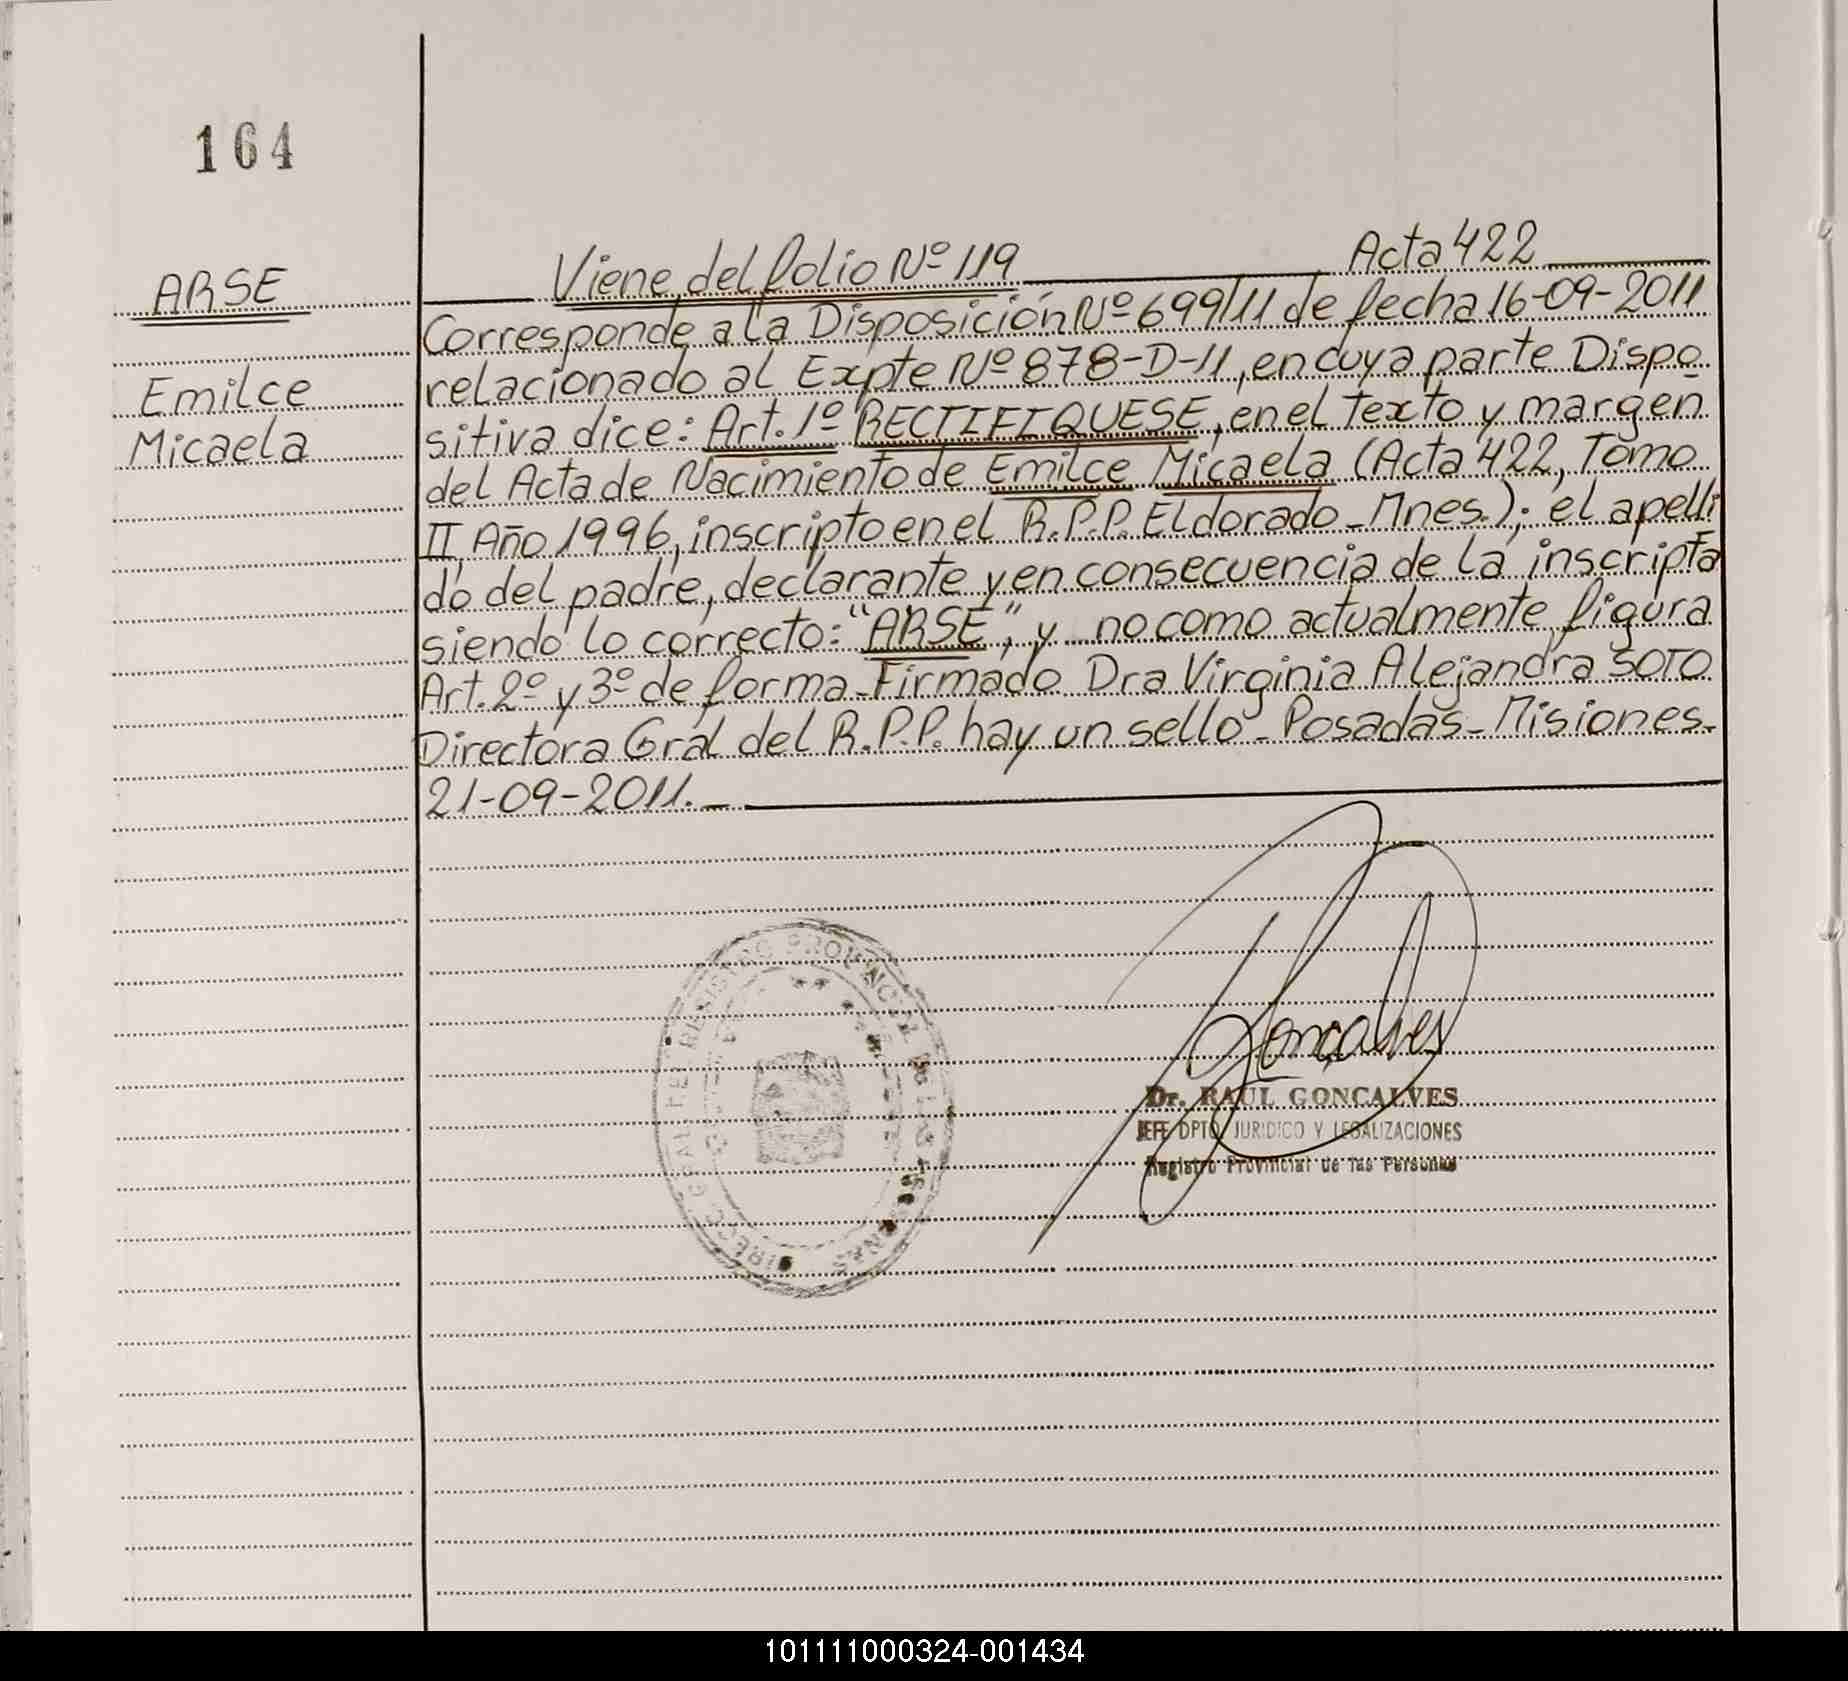 164
ARSE
Emilce
Micaela
Viene del folio Nº 119 Acta 422
Corresponde a la Disposición Nº 699/11 de fecha 16-09-2011
relacionado al Expte Nº 878-D-11, en cuya parte Dispo
sitiva dice: Art. 1º RECTIFIQUESE, en el texto y margen
del Acta de Nacimiento de Emilce Micaela (Acta 422, Tomo
II Año 1996, inscripto en el R.P.P. Eldorado - Mnes.); el apelli
do del padre, declarante y en consecuencia de la inscripta
siendo lo correcto: "ARSE", y no como actualmente figura
Art. 2º y 3º de forma - Firmado Dra Virginia Alejandra SOTO
Directora Gral del R.P.P. hay un sello - Posadas - Misiones -
21-09-2011. -
DIRECC GRAL DEL REGISTRO PROVINCIAL DE LAS PERSONAS
Goncalves
Dr. RAUL GONCALVES
JEFE DPTO. JURIDICO Y LEGALIZACIONES
Registro Provincial de las Personas
101111000324-001434